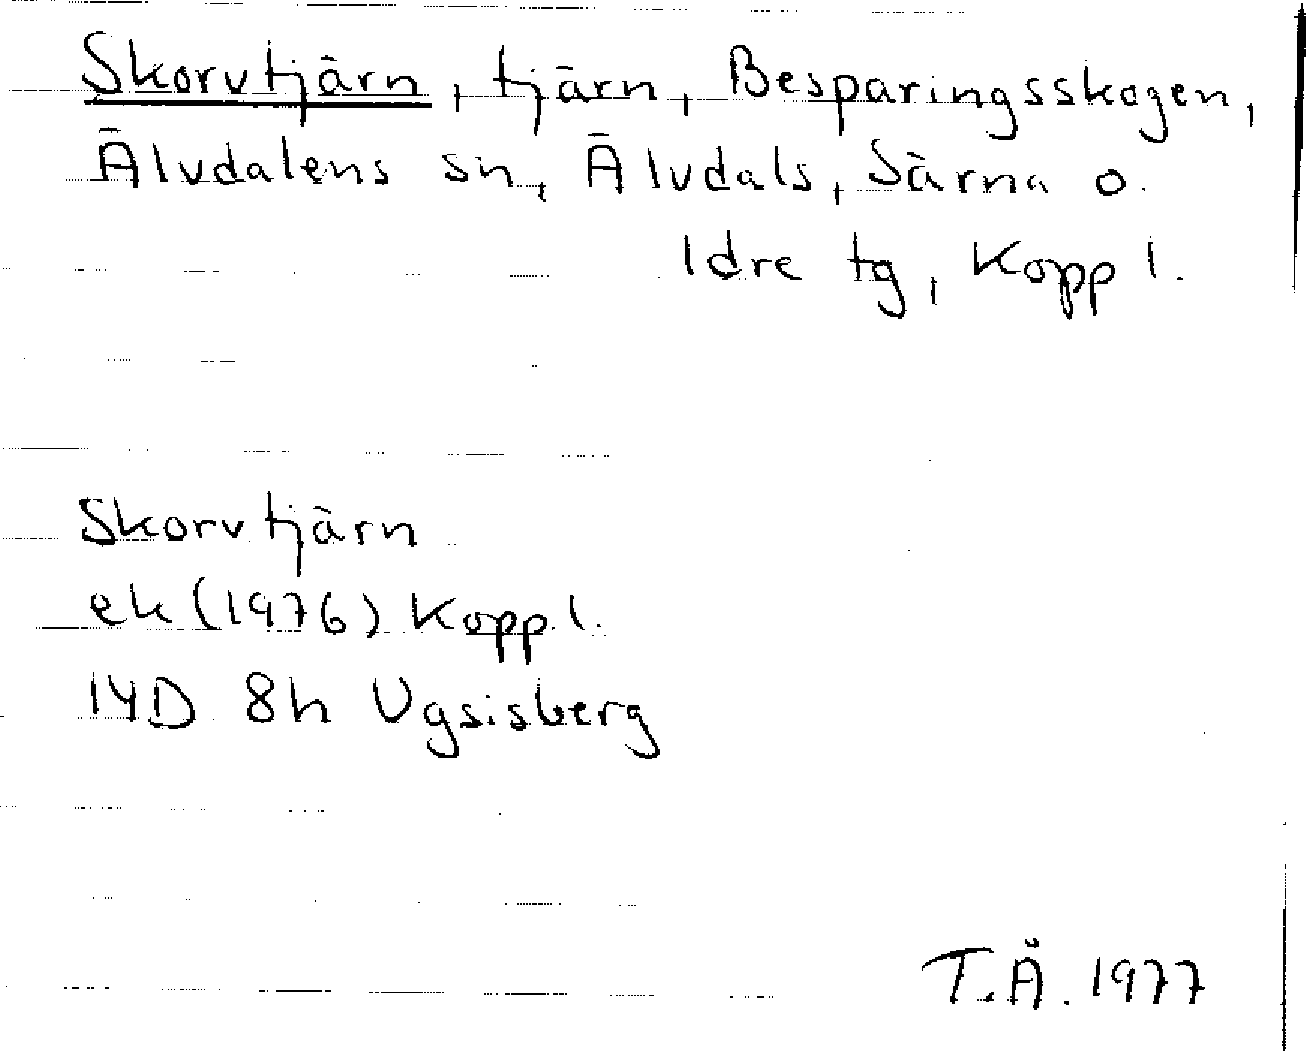 Skorvtjärn, tjärn, Besparingsskogen,
Älvdalens sn, Älvdals, Särna o.
Idre tg, Kopp l.
Skorvtjärn
ek (1976) Kopp l.
14D 8h Ugsisberg
T.Ä. 1977